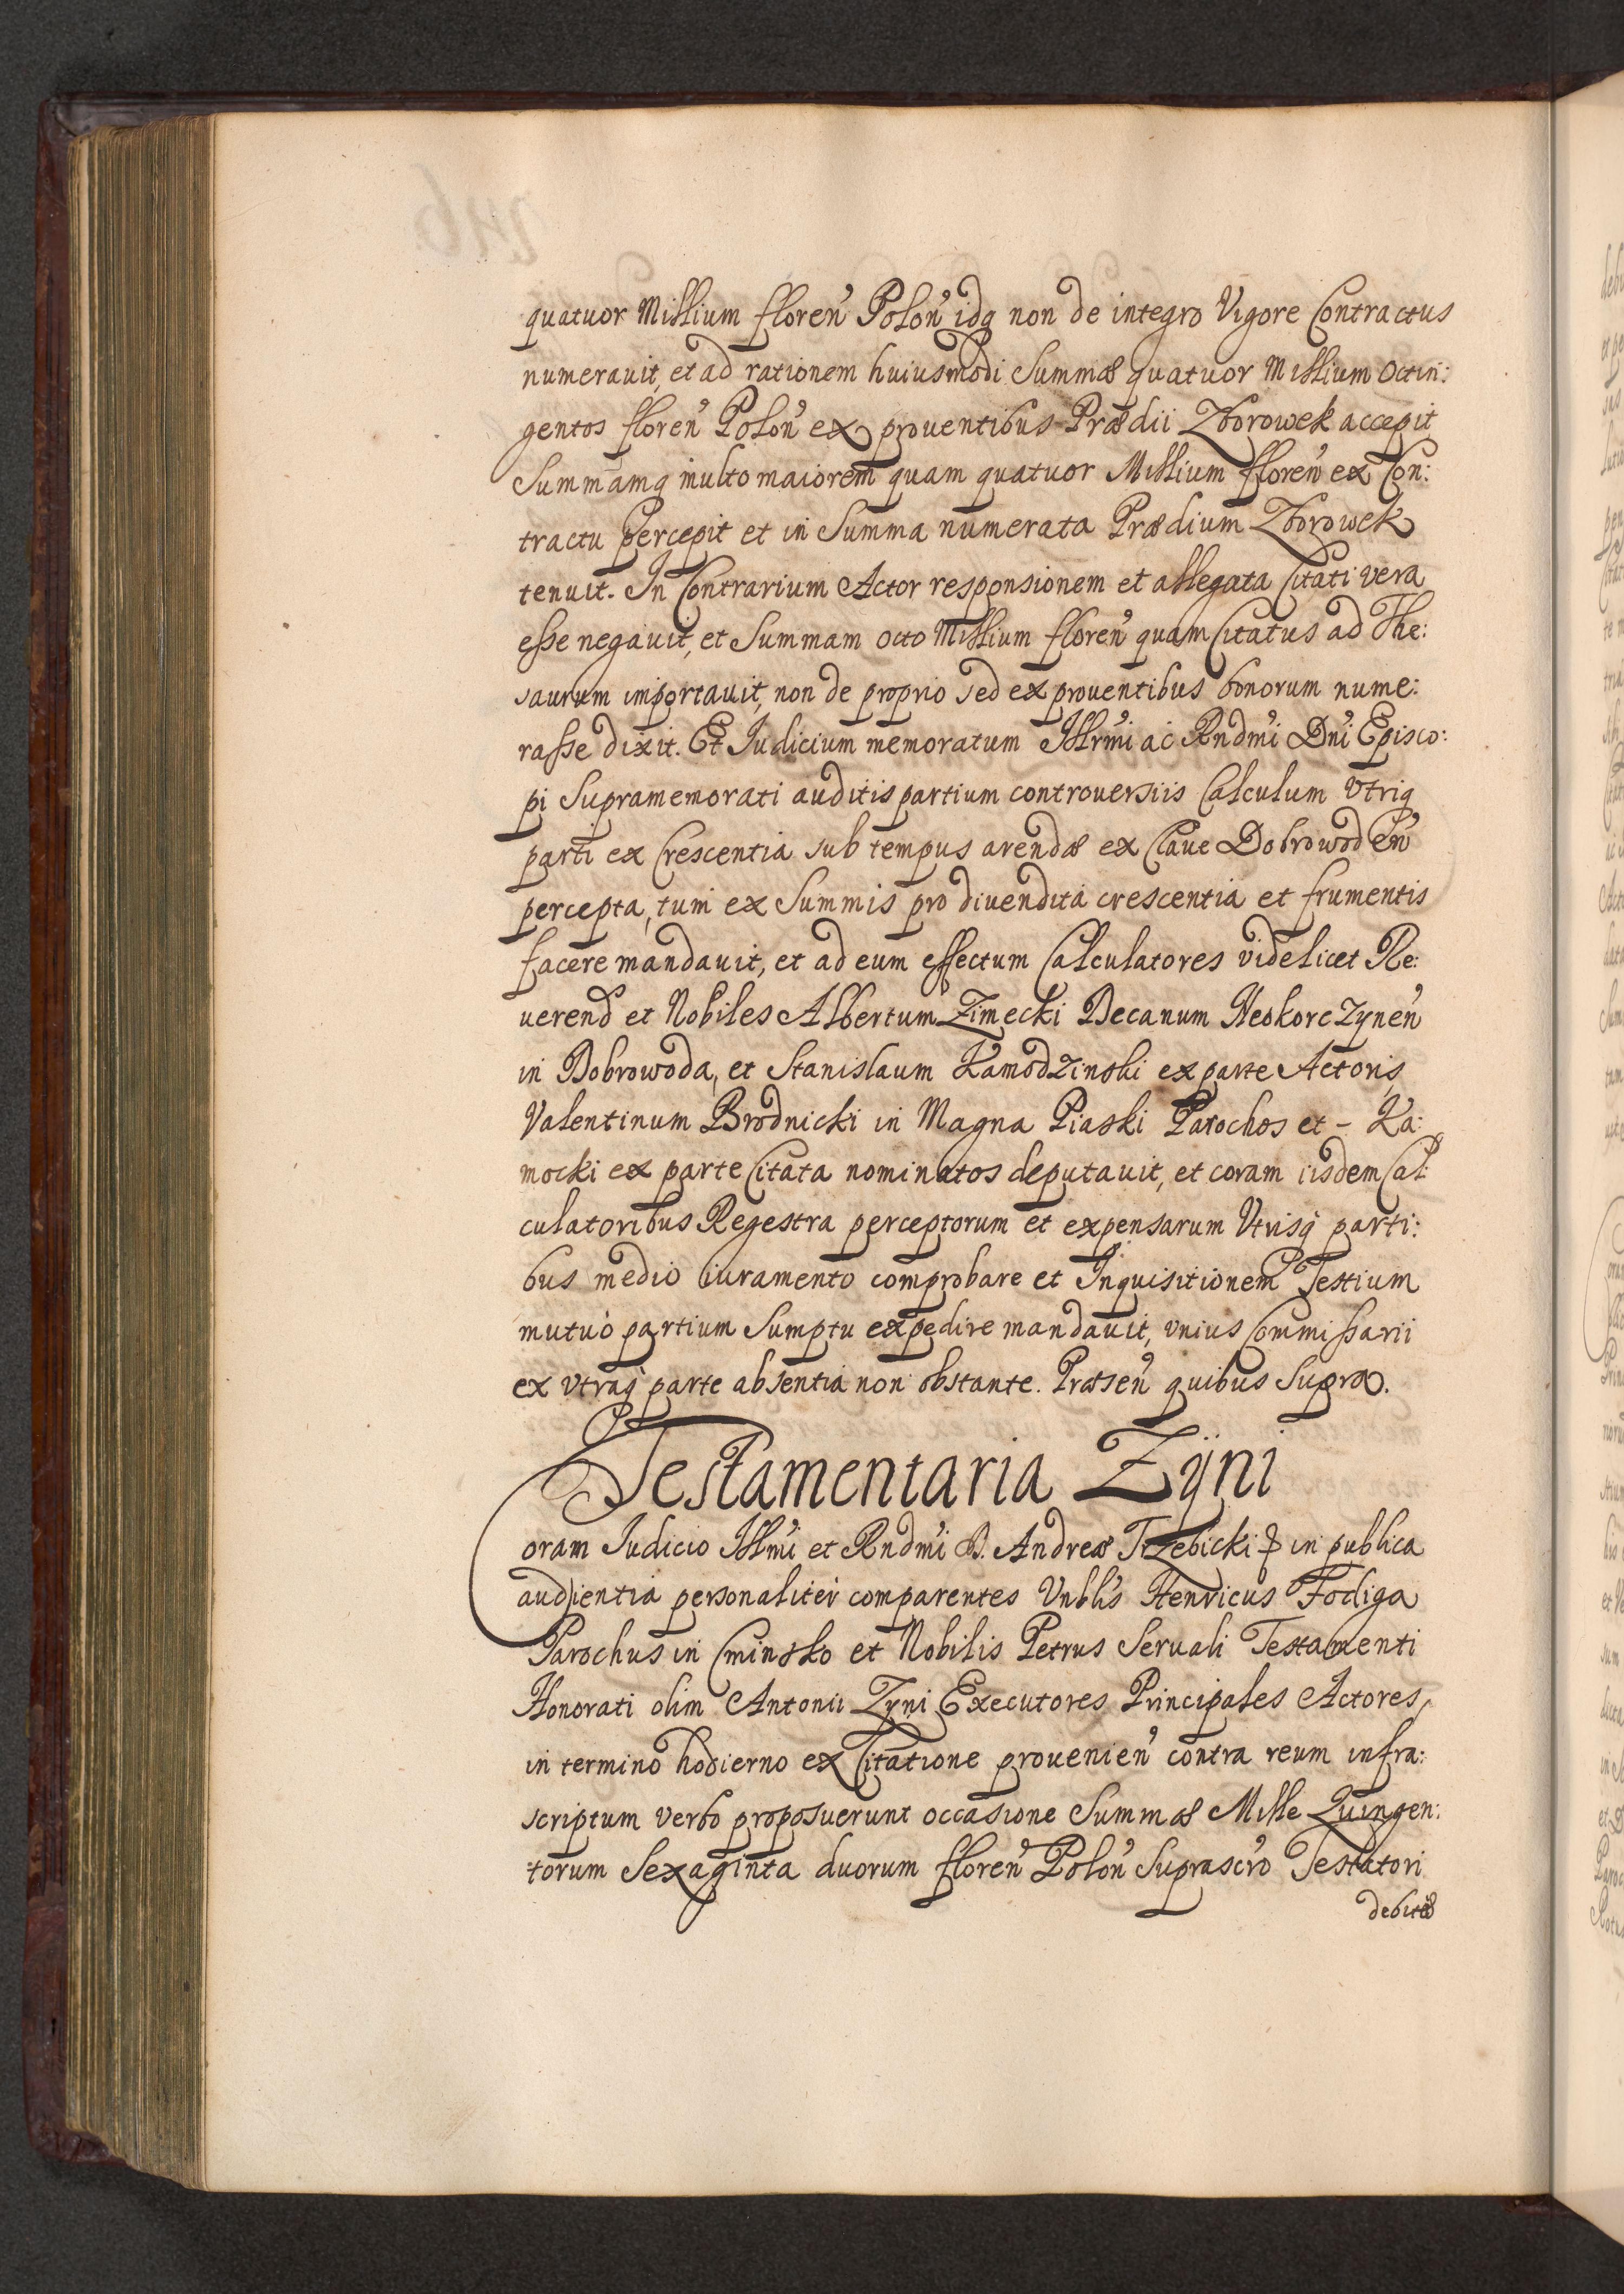 quatuor Millium floren̄ Polon̄ idq̃ non de integro Vigore Contractus
numerauit, et ad rationem huiusmodi Summæ quatuor Millium Octin:
gentos floren̄ Polon̄ ex prouentibus Prædii Zborowek accepit
Summamq̃ multo maiorem quam quatuor Millium floren̄ ex Con:
tractu percepit et in Summa numerata Prædium Zborowek
tenuit. In Contrarium Actor responsionem et allegata Citati vera
esse negauit, et Summam octo Millium floren̄ quam Citatus ad The:
saurum importauit, non de proprio sed ex prouentibus bonorum nume:
rasse dixit. Et Iudicium memoratum Illrm̄i ac Rndm̄i Dn̄i Episco:
pi Supramemorati auditis partium controuersiis Calculum Vtriq̃
parti ex Crescentia sub tempus arendæ ex Claue Dobrowoden̄
percepta, tum ex Summis pro diuendita crescentia et frumentis
facere mandauit, et ad eum effectum Calculatores videlicet Re:
uerend et Nobiles Albertum Zimecki Decanum Neokorczynen̄
in Dobrowoda, et Stanislaum Kamodzinski ex parte Actoris,
Valentinum Brodnicki in Magna Piaski Parochos et - Ka:
mocki ex parte Citata nominatos deputauit, et coram iisdem Cal:
culatoribus Regestra perceptorum et expensarum Vtrisq̃ parti:
bus medio iuramento comprobare et Inquisitionem Testium
mutuò partium Sumptu expedire mandauit, vnius Commissarii
ex vtraq̃ parte absentia non obstante. Præsen̄ quibus Supra.
Testamentaria Zÿni
Coram Iudicio Illm̄i et Rndm̄i D. Andreæ Trzebicki & in publica
audientia personaliter comparentes Vnbl̄is Henricus Fodiga
Parochus in Cminsko et Nobilis Petrus Seruali Testamenti
Honorati olim Antonii Zyni Executores Principales Actores,
in termino hodierno ex Citatione prouenien̄ contra reum infra:
scriptum verbo proposuerunt occasione Summæ Mille Quingen:
torum Sexaginta duorum floren̄ Polon̄ Suprascr̄o Testatori
debitæ